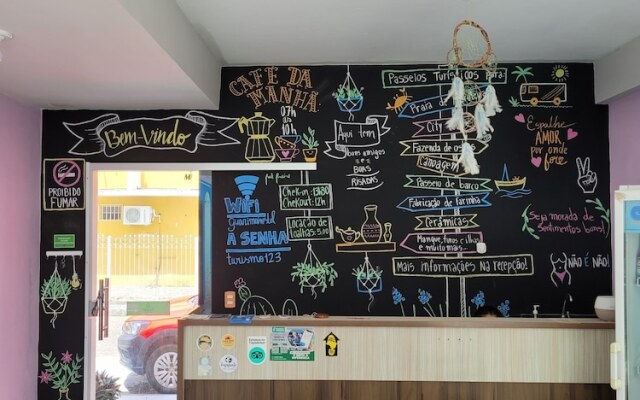 CAFÉ DA
MANHÃ
07h
às
10h
Bem-Vindo
PROIBIDO
FUMAR
WiFi
A SENHA
turismo123
Check-in: 13h30
Checkout: 12h
Locação de
toalhas 5,00
Aqui tem
bons amigos
e
BOAS
RISADAS
Passeios Turísticos para
Praia de
City
Fazenda de os
Canoagem
Passeio de barco
Fabricação de farinha
Cerâmicas
Mangue, fotos c/lhs
e muito mais...
Mais informações na recepção!
Espalhe
AMOR,
por onde
for.
Seja morada de
Sentimentos bons!
NÃO é NÃO!